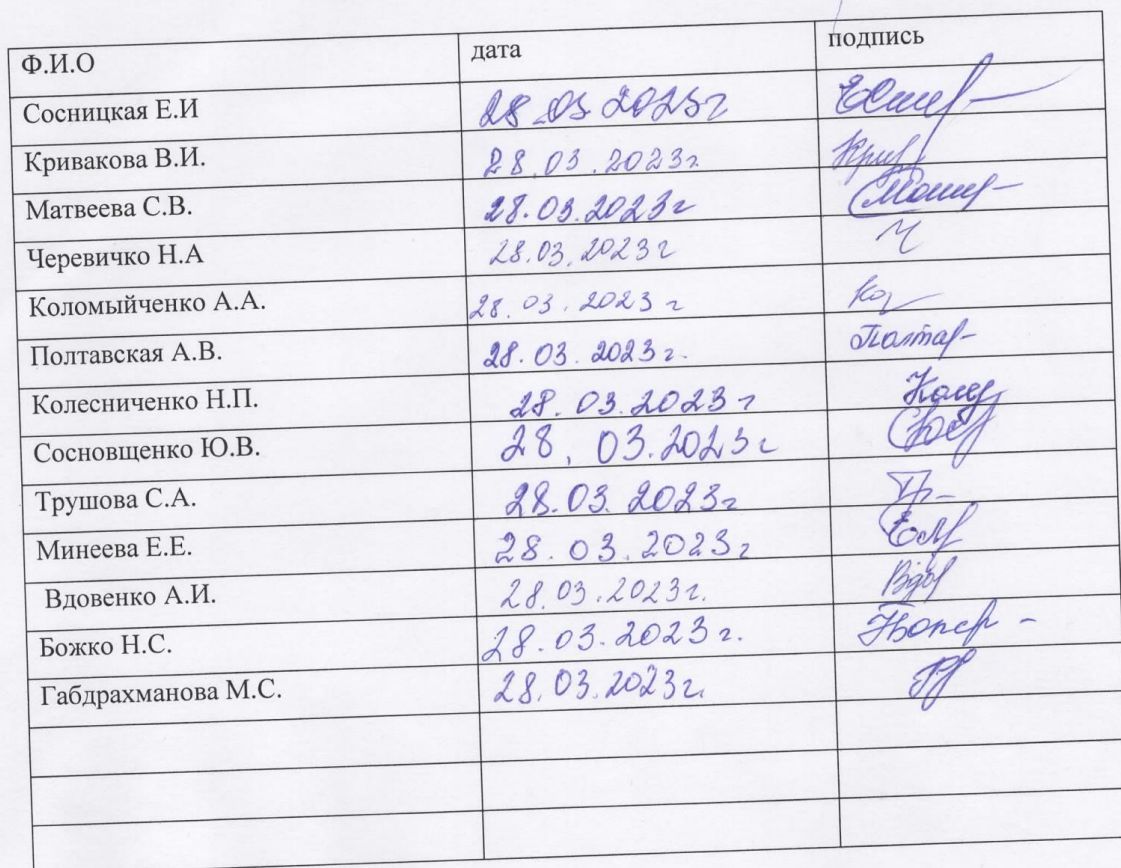 Ф.И.О дата подпись
Сосницкая Е.И 28.03.2023г
Кривакова В.И. 28.03.2023г.
Матвеева С.В. 28.03.2023г
Черевичко Н.А 28.03.2023г
Коломыйченко А.А. 28.03.2023г
Полтавская А.В. 28.03.2023г.
Колесниченко Н.П. 28.03.2023г
Сосновщенко Ю.В. 28.03.2023г
Трушова С.А. 28.03.2023г
Минеева Е.Е. 28.03.2023г
Вдовенко А.И. 28.03.2023г.
Божко Н.С. 28.03.2023г.
Габдрахманова М.С. 28.03.2023г.